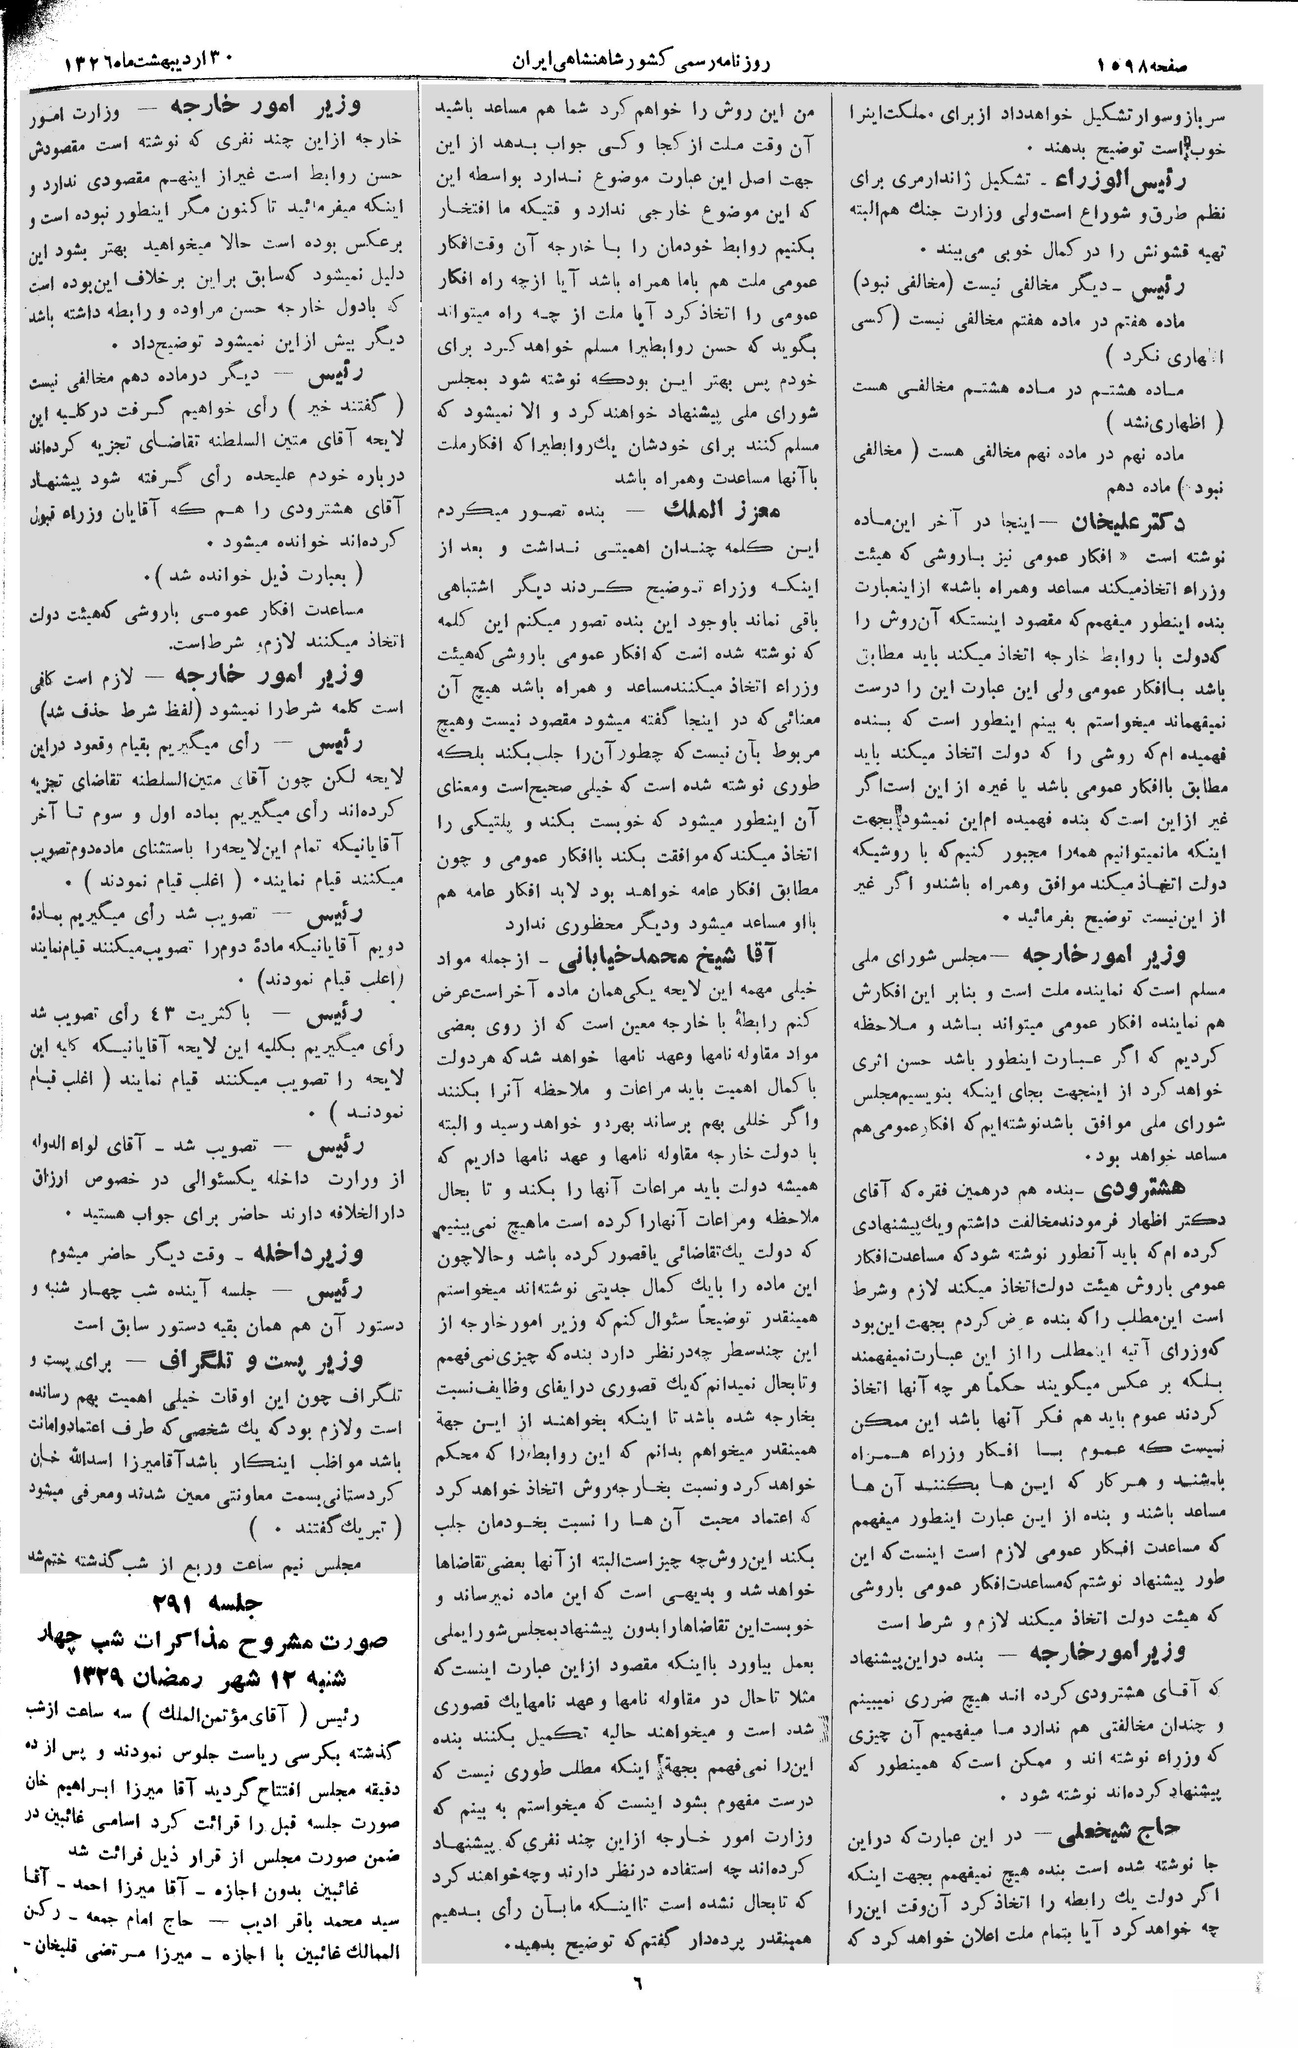 صفحه ۱۵۹۸
روزنامه رسمی کشور شاهنشاهی ایران
۳۰ اردیبهشت ماه ۱۳۲۶
سرباز و سوار تشکیل خواهد داد از برای مملکت اینرا
خوب است توضیح بدهند .
رئیس الوزراء - تشکیل ژاندارمری برای
نظم طرق و شوراع است ولی وزارت جنك هم البته
تهیه قشونش را در کمال خوبی می بیند .
رئیس - دیگر مخالفی نیست (مخالفی نبود)
ماده هفتم در ماده هفتم مخالفی نیست ( کسی
اظهاری نکرد )
ماده هشتم در ماده هشتم مخالفی هست
( اظهاری نشد )
ماده نهم در ماده نهم مخالفی هست ( مخالفی
نبود ) ماده دهم
دکتر علیخان — اینجا در آخر این ماده
نوشته است « افکار عمومی نیز باروشی که هیئت
وزراء اتخاذ میکند مساعد وهمراه باشد» از اینعبارت
بنده اینطور میفهمم که مقصود اینستکه آن روش را
که دولت با روابط خارجه اتخاذ میکند باید مطابق
باشد با افکار عمومی ولی این عبارت این را درست
نمیفهماند میخواستم به بینم اینطور است که بنده
فهمیده ام که روشی را که دولت اتخاذ میکند باید
مطابق با افکار عمومی باشد یا غیره از این است اگر
غیر از این است که بنده فهمیده ام این نمیشود بجهت
اینکه ما نمیتوانیم همه را مجبور کنیم که با روشیکه
دولت اتخاذ میکند موافق وهمراه باشند و اگر غیر
از این نیست توضیح بفرمائید .
وزیر امور خارجه — مجلس شورای ملی
مسلم است که نماینده ملت است و بنابر این افکارش
هم نماینده افکار عمومی میتواند باشد و ملاحظه
کردیم که اگر عبارت اینطور باشد حسن اثری
خواهد کرد از اینجهت بجای اینکه بنویسیم مجلس
شورای ملی موافق باشد نوشته ایم که افکار عمومی هم
مساعد خواهد بود .
هشترودی - بنده هم در همین فقره که آقای
دکتر اظهار فرمودند مخالفت داشتم و یك پیشنهادی
کرده ام که باید آنطور نوشته شود که مساعدت افکار
عمومی باروش هیئت دولت اتخاذ میکند لازم و شرط
است این مطلب را که بنده عرض کردم بجهت این بود
که وزرای آتیه این مطلب را از این عبارت نمیفهمند
بلکه بر عکس میگویند حکماً هر چه آنها اتخاذ
کردند عموم باید هم فکر آنها باشد این ممکن
نیست که عموم با افکار وزراء همراه
باشند و هر کار که این ها بکنند آن ها
مساعد باشند و بنده از این عبارت اینطور میفهمم
که مساعدت افکار عمومی لازم است اینست که این
طور پیشنهاد نوشتم که مساعدت افکار عمومی باروشی
که هیئت دولت اتخاذ میکند لازم و شرط است
وزیر امور خارجه — بنده در این پیشنهاد
که آقای هشترودی کرده اند هیچ ضرری نمیبینم
و چندان مخالفتی هم ندارد ما میفهمیم آن چیزی
که وزراء نوشته اند و ممکن است که همینطور که
پیشنهاد کرده اند نوشته شود .
حاج شیخعلی — در این عبارت که در این
جا نوشته شده است بنده هیچ نمیفهمم بجهت اینکه
اگر دولت یك رابطه را اتخاذ کرد آن وقت این را
چه خواهد کرد آیا بتمام ملت اعلان خواهد کرد که
من این روش را خواهم کرد شما هم مساعد باشید
آن وقت ملت از کجا و کی جواب بدهد از این
جهت اصل این عبارت موضوع ندارد بواسطه این
که این موضوع خارجی ندارد و قتیکه ما افتخار
بکنیم روابط خودمان را با خارجه آن وقت افکار
عمومی ملت هم باما همراه باشد آیا از چه راه افکار
عمومی را اتخاذ کرد آیا ملت از چه راه میتواند
بگوید که حسن روابطیرا مسلم خواهد کرد برای
خودم پس بهتر این بود که نوشته شود بمجلس
شورای ملی پیشنهاد خواهند کرد و الا نمیشود که
مسلم کنند برای خودشان یك روابطیرا که افکار ملت
با آنها مساعدت وهمراه باشد
معزز الملك — بنده تصور میکردم
این کلمه چندان اهمیتی نداشت و بعد از
اینکه وزراء توضیح کردند دیگر اشتباهی
باقی نماند باوجود این بنده تصور میکنم این کلمه
که نوشته شده است که افکار عمومی باروشی که هیئت
وزراء اتخاذ میکنند مساعد و همراه باشد هیچ آن
معنائی که در اینجا گفته میشود مقصود نیست وهیچ
مربوط بآن نیست که چطور آن را جلب بکند بلکه
طوری نوشته شده است که خیلی صحیح است ومعنای
آن اینطور میشود که خوبست بکند و پلتیکی را
اتخاذ میکند که موافقت بکند باافکار عمومی و چون
مطابق افکار عامه خواهد بود لابد افکار عامه هم
بااو مساعد میشود و دیگر محظوری ندارد
آقا شیخ محمد خیابانی - از جمله مواد
خیلی مهمه این لایحه یکی همان ماده آخر است عرض
کنم رابطهٔ با خارجه معین است که از روی بعضی
مواد مقاوله نامها وعهد نامها خواهد شد که هر دولت
با کمال اهمیت باید مراعات و ملاحظه آنرا بکنند
واگر خللی بهم برساند بهردو خواهد رسید و البته
با دولت خارجه مقاوله نامها و عهد نامها داریم که
همیشه دولت باید مراعات آنها را بکند و تا بحال
ملاحظه ومراعات آنهارا کرده است ما هیچ نمی بینیم
که دولت یك تقاضائی یا قصور کرده باشد و حالا چون
این ماده را بایك کمال جدیتی نوشته اند میخواستم
همینقدر توضیحاً سئوال کنم که وزیر امور خارجه از
این چند سطر چه در نظر دارد بنده که چیزی نمی فهمم
و تابحال نمیدانم که یك قصوری در ایفای وظایف نسبت
بخارجه شده باشد تا اینکه بخواهند از این جهة
همینقدر میخواهم بدانم که این روابط را که محکم
خواهد کرد ونسبت بخارجه روش اتخاذ خواهد کرد
که اعتماد محبت آن ها را نسبت بخودمان جلب
بکند این روش چه چیز است البته از آنها بعضی تقاضاها
خواهد شد و بدیهی است که این ماده نمیرساند و
خوبست این تقاضاها را بدون پیشنهاد بمجلس شورایملی
بعمل بیاورد بااینکه مقصود از این عبارت اینست که
مثلا تاحال در مقاوله نامها وعهد نامها یك قصوری
شده است و میخواهند حالیه تکمیل بکنند بنده
این را نمی فهمم بجهة اینکه مطلب طوری نیست که
درست مفهوم بشود اینست که میخواستم به بینم که
وزارت امور خارجه از این چند نفری که پیشنهاد
کرده اند چه استفاده در نظر دارند وچه خواهند کرد
که تابحال نشده است تا اینکه ما بآن رأی بدهیم
همینقدر پرده دار گفتم که توضیح بدهید.
وزیر امور خارجه — وزارت امور
خارجه از این چند نفری که نوشته است مقصودش
حسن روابط است غیر از اینهم مقصودی ندارد و
اینکه میفرمائید تا کنون مگر اینطور نبوده است و
بر عکس بوده است حالا میخواهید بهتر بشود این
دلیل نمیشود که سابق براین بر خلاف این بوده است
که بادول خارجه حسن مراوده و رابطه داشته باشد
دیگر بیش از این نمیشود توضیح داد .
رئیس — دیگر در ماده دهم مخالفی نیست
( گفتند خیر ) رأی خواهیم گرفت در کلیه این
لایحه آقای متین السلطنه تقاضای تجزیه کرده اند
درباره خودم علیحده رأی گرفته شود پیشنهاد
آقای هشترودی را هم که آقایان وزراء قبول
کرده اند خوانده میشود .
( بعبارت ذیل خوانده شد ).
مساعدت افکار عمومی باروشی که هیئت دولت
اتخاذ میکنند لازم و شرط است.
وزیر امور خارجه — لازم است کافی
است کلمه شرط را نمیشود (لفظ شرط حذف شد)
رئیس — رأی میگیریم بقیام وقعود در این
لایحه لکن چون آقای متین السلطنه تقاضای تجزیه
کرده اند رأی میگیریم بماده اول و سوم تا آخر
آقایانیکه تمام این لایحه را باستثنای ماده دوم تصویب
میکنند قیام نمایند. ( اغلب قیام نمودند ) .
رئیس — تصویب شد رأی میگیریم بمادهٔ
دویم آقایانیکه مادهٔ دوم را تصویب میکنند قیام نمایند
(اغلب قیام نمودند).
رئیس — با کثریت ۴۳ رأی تصویب شد
رأی میگیریم بکلیه این لایحه آقایانیکه کلیه این
لایحه را تصویب میکنند قیام نمایند ( اغلب قیام
نمودند ) .
رئیس — تصویب شد - آقای لواء الدوله
از وزارت داخله یکسئوالی در خصوص ارزاق
دارالخلافه دارند حاضر برای جواب هستید .
وزیر داخله - وقت دیگر حاضر میشوم
رئیس — جلسه آینده شب چهار شنبه و
دستور آن هم همان بقیه دستور سابق است
وزیر پست و تلگراف — برای پست و
تلگراف چون این اوقات خیلی اهمیت بهم رسانده
است ولازم بود که یك شخصی که طرف اعتماد وامانت
باشد مواظب اینکار باشد آقامیرزا اسدالله خان
کردستانی بسمت معاونتی معین شدند ومعرفی میشود
( تبریك گفتند . )
مجلس نیم ساعت وربع از شب گذشته ختم شد
جلسه ۲۹۱
صورت مشروح مذاکرات شب چهار
شنبه ۱۲ شهر رمضان ۱۳۲۹
رئیس ( آقای مؤتمن الملك ) سه ساعت از شب
گذشته بکرسی ریاست جلوس نمودند و پس از ده
دقیقه مجلس افتتاح گردید آقا میرزا ابراهیم خان
صورت جلسه قبل را قرائت کرد اسامی غائبین در
ضمن صورت مجلس از قرار ذیل قرائت شد
غائبین بدون اجازه - آقا میرزا احمد - آقا
سید محمد باقر ادیب — حاج امام جمعه - رکن
الممالك غائبین با اجازه - میرزا مرتضی قلیخان -
۶